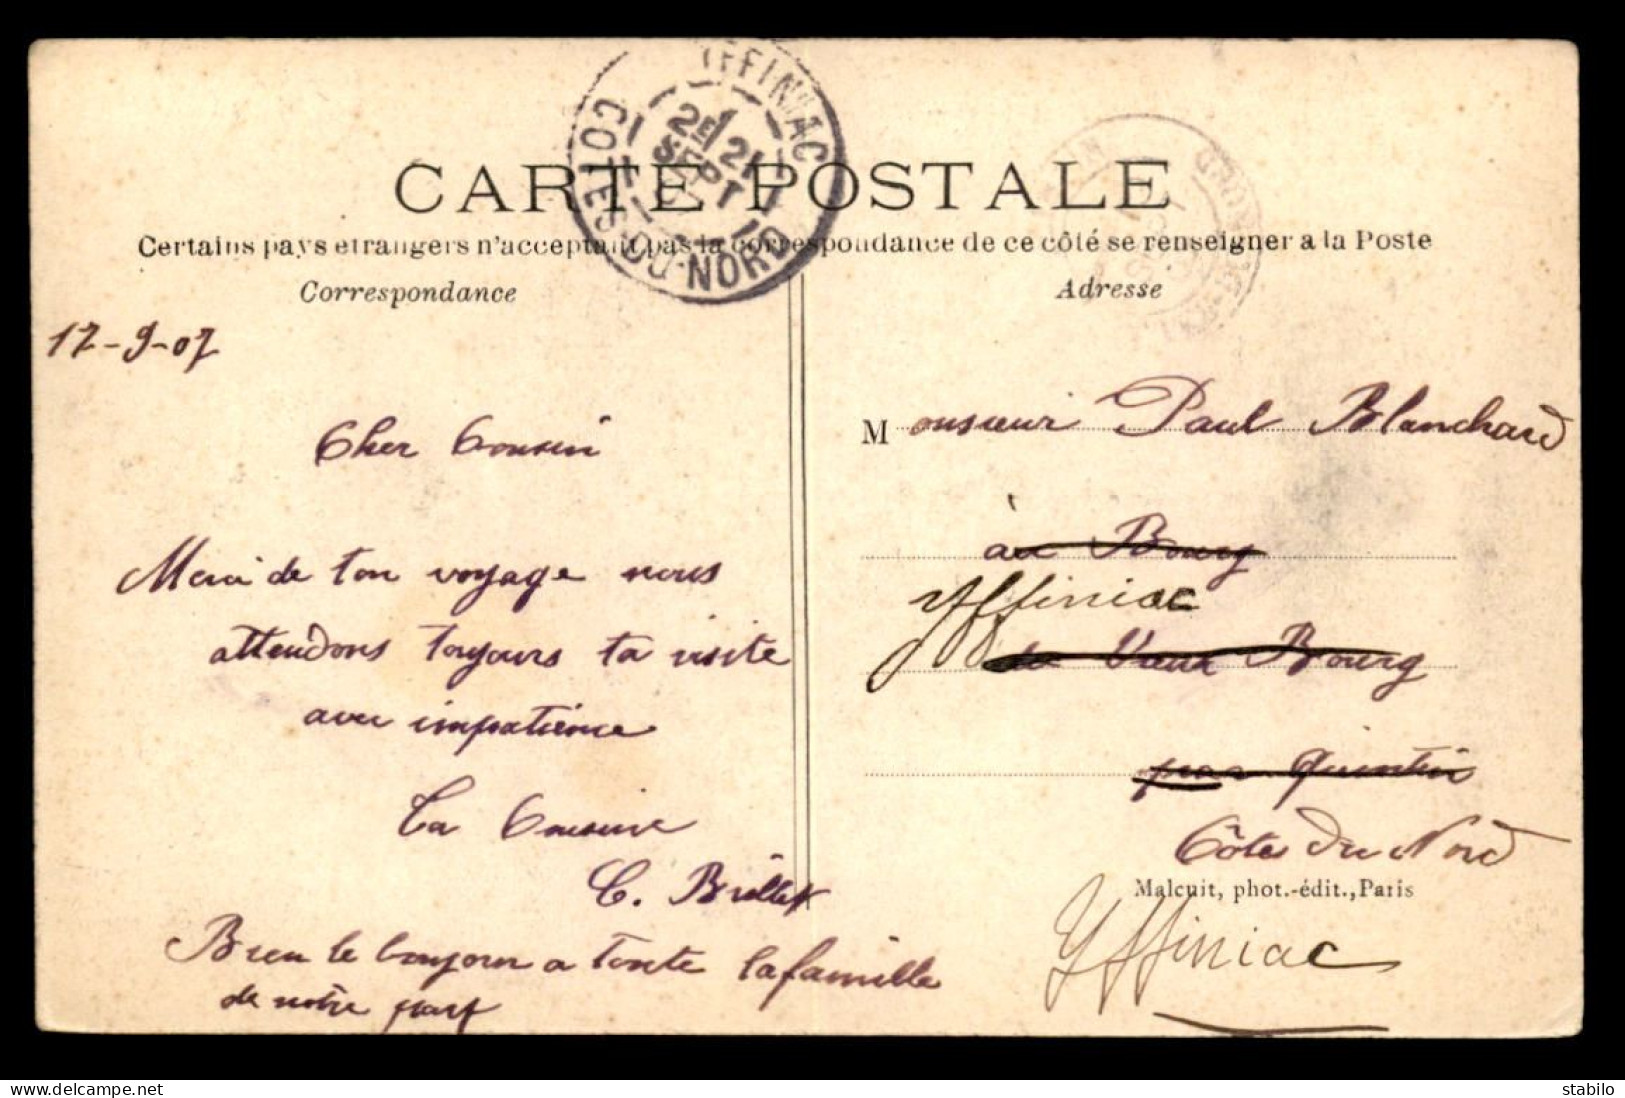 CARTE POSTALE
Certains pays étrangers n'acceptant pas la correspondance de ce côté se renseigner à la Poste
Correspondance
Adresse
YFFINIAC
2E 21
SEPT
07
COTES-DU-NORD
17-9-07
Cher Cousin
Merci de ton voyage nous
attendons toujours ta visite
avec impatience
Ta Cousine
C. Brillet
Bien le bonjour a toute la famille
de notre part
Monsieur Paul Blanchard
au Bourg
Yffiniac
le Vieux Bourg
par Quintin
Côtes du Nord
Malcuit, phot.-édit., Paris
Yffiniac
stabilo